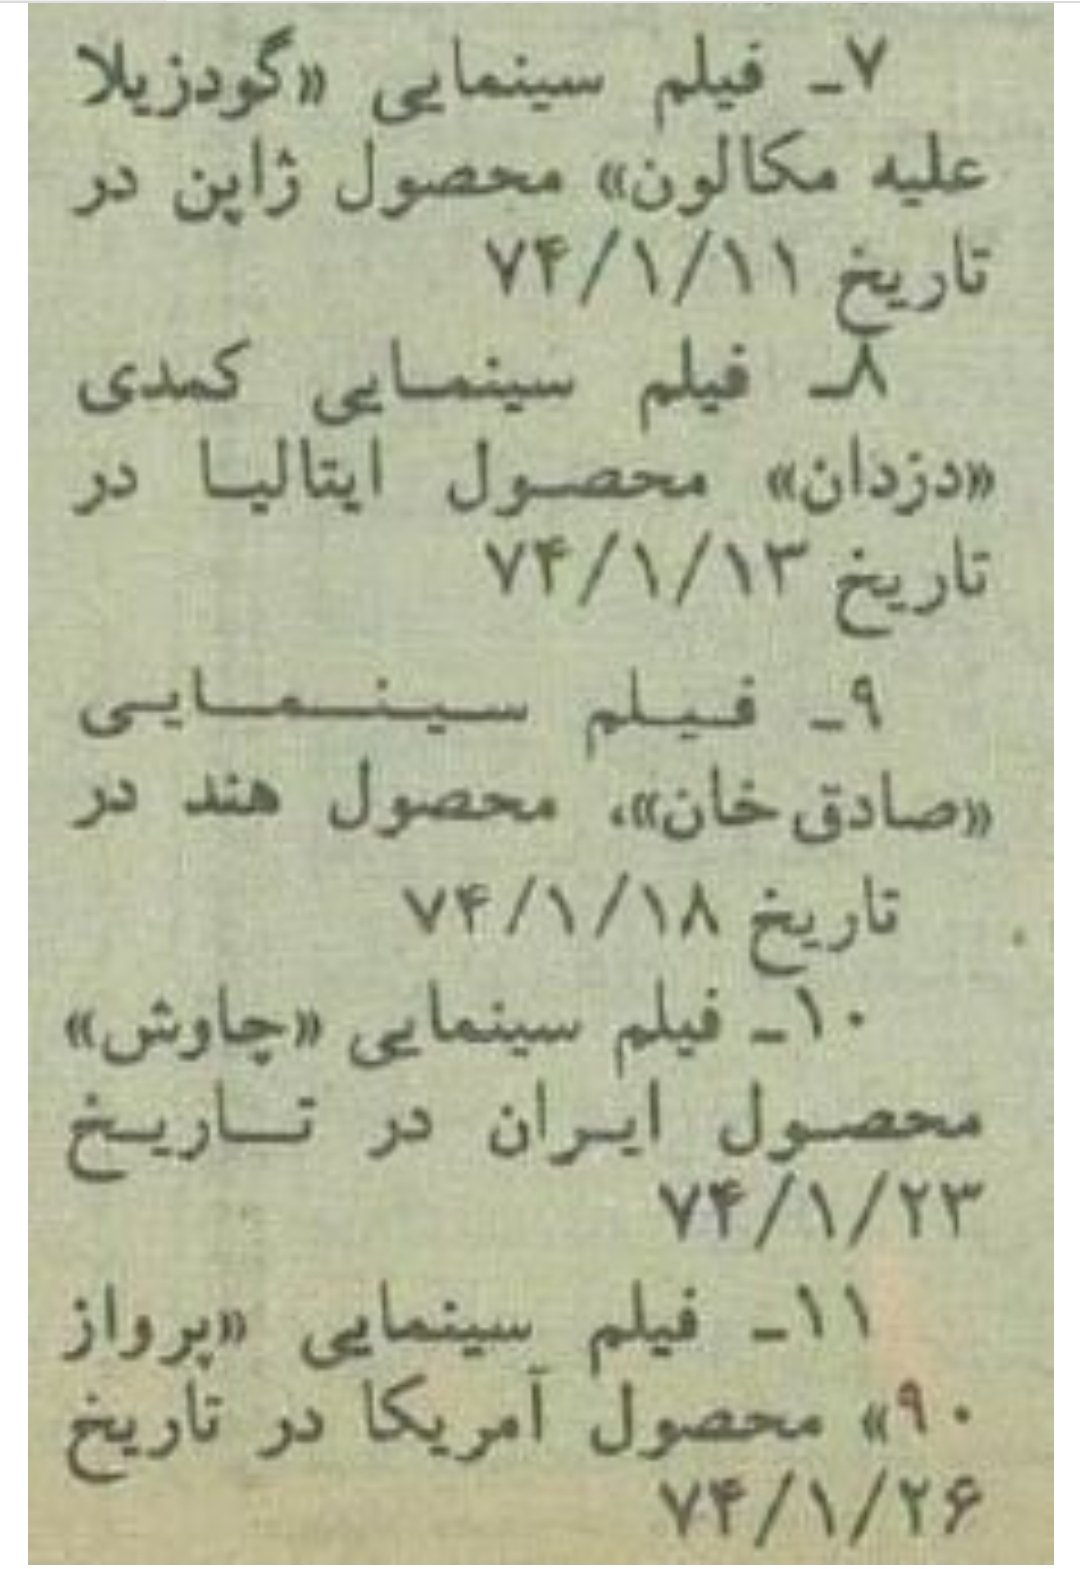 ۷ـ فیلم سینمایی «گودزیلا
علیه مکالون» محصول ژاپن در
تاریخ ۷۴/۱/۱۱
۸ـ فیلم سینمایی کمدی
«دزدان» محصول ایتالیا در
تاریخ ۷۴/۱/۱۳
۹ـ فیلم سینمایی
«صادق خان»، محصول هند در
تاریخ ۷۴/۱/۱۸
۱۰ـ فیلم سینمایی «چاوش»
محصول ایران در تاریخ
۷۴/۱/۲۳
۱۱ـ فیلم سینمایی «پرواز
۹۰» محصول آمریکا در تاریخ
۷۴/۱/۲۶